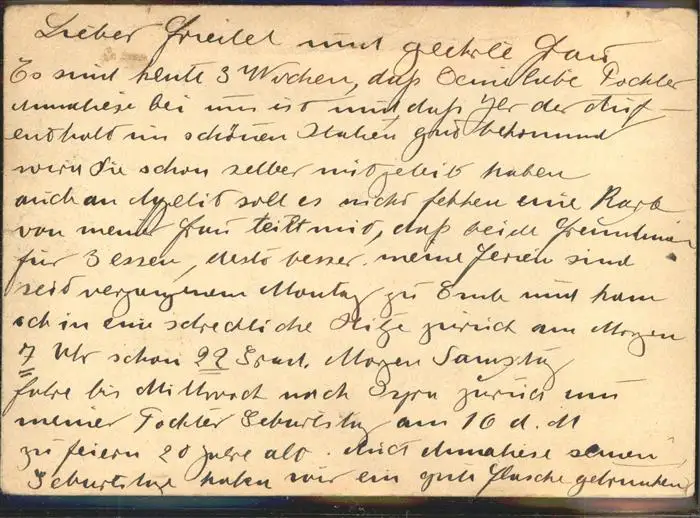 Lieber Friedel und geehrte Frau
Es sind heute 3 Wochen, daß Deine liebe Tochter
Annaliese bei uns ist und daß Ihr der Auf-
enthalt im schönen Italien gut bekommd
wird Sie schon selber mitgeteilt haben
auch an Apetit soll es nicht fehlen eine Karte
von meiner Frau teilt mit, daß beide Freundinnen
für 3 essen, desto besser meine Ferien sind
seid vergangenem Montag zu Ende und kam
ich in eine schreckliche Hitze zurück am Morgen
7 Uhr schon 22 Grad. Morgen Samstag
fahre bis Mittwoch nach zurück um
meiner Tochter Geburtstag am 16 d. M
zu feiern 20 Jahre alt. Auf Annaliese seinen
Geburtstag haben wir ein gute Flasche getrunken